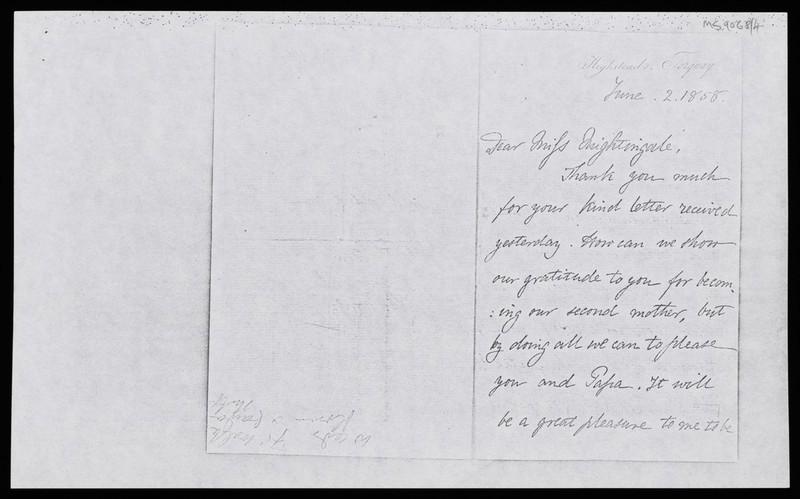 MS.9068/4
Highsteads. Torquay
June. 2. 1858.
Dear Miſs Nightingale,
Thank you much
for your kind letter received
yesterday. How can we show
our gratitude to you for becom:
:ing our second mother, but
by doing all we can to please
you and Papa. It will
be a great pleasure to me to be